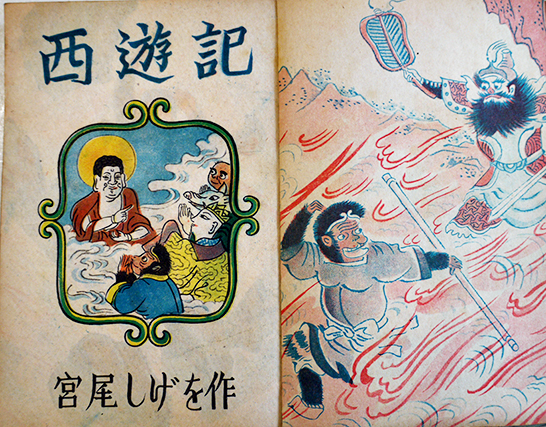 西遊記
宮尾しげを作